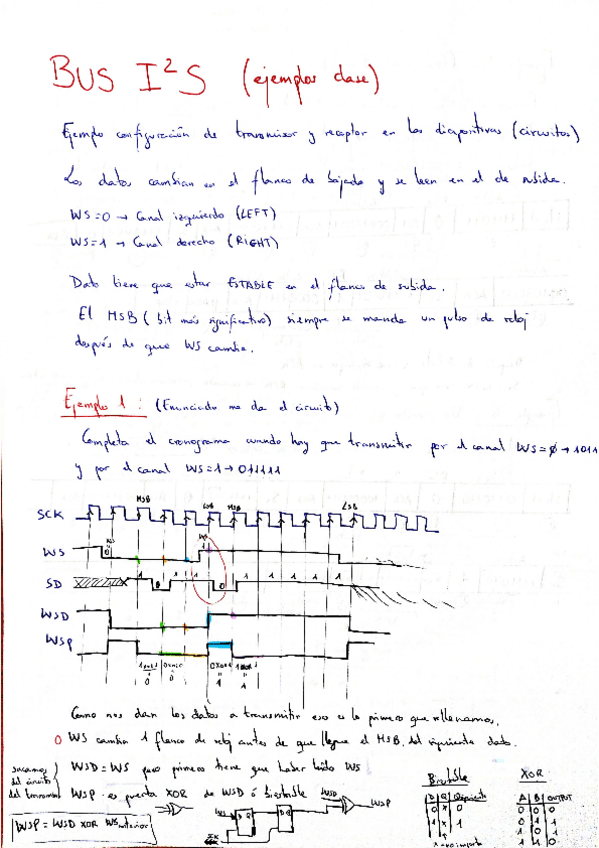 BUS I²S (ejemplos clase)
Ejemplo configuración de transmisor y receptor en las diapositivas (circuitos)
Los datos cambian en el flanco de bajada y se leen en el de subida.
WS=0 → Canal izquierdo (LEFT)
WS=1 → Canal derecho (RIGHT)
Dato tiene que estar ESTABLE en el flanco de subida.
El MSB (bit más significativo) siempre se manda un pulso de reloj
después de que WS cambia.
Ejemplo 1: (Enunciado me da el circuito)
Completa el cronograma cuando hay que transmitir por el canal WS=0 → 1011
y por el canal WS=1 → 011111
MSB LSB MSB LSB
SCK
WS
SD
WSD
WSP
Como nos dan los datos a transmitir eso es lo primero que rellenamos.
WS cambia 1 flanco de reloj antes de que llegue el MSB del siguiente dato.
WSD = WS pero primero tiene que haber leído WS
WSP es puerta XOR de WSD ó biestable
WSP = WSD XOR WS anterior
WSD
WSP
Biestable
D Q siguiente
0 x 0
1 x 1
x = no importa
XOR
A B OUTPUT
0 0 0
0 1 1
1 0 1
1 1 0